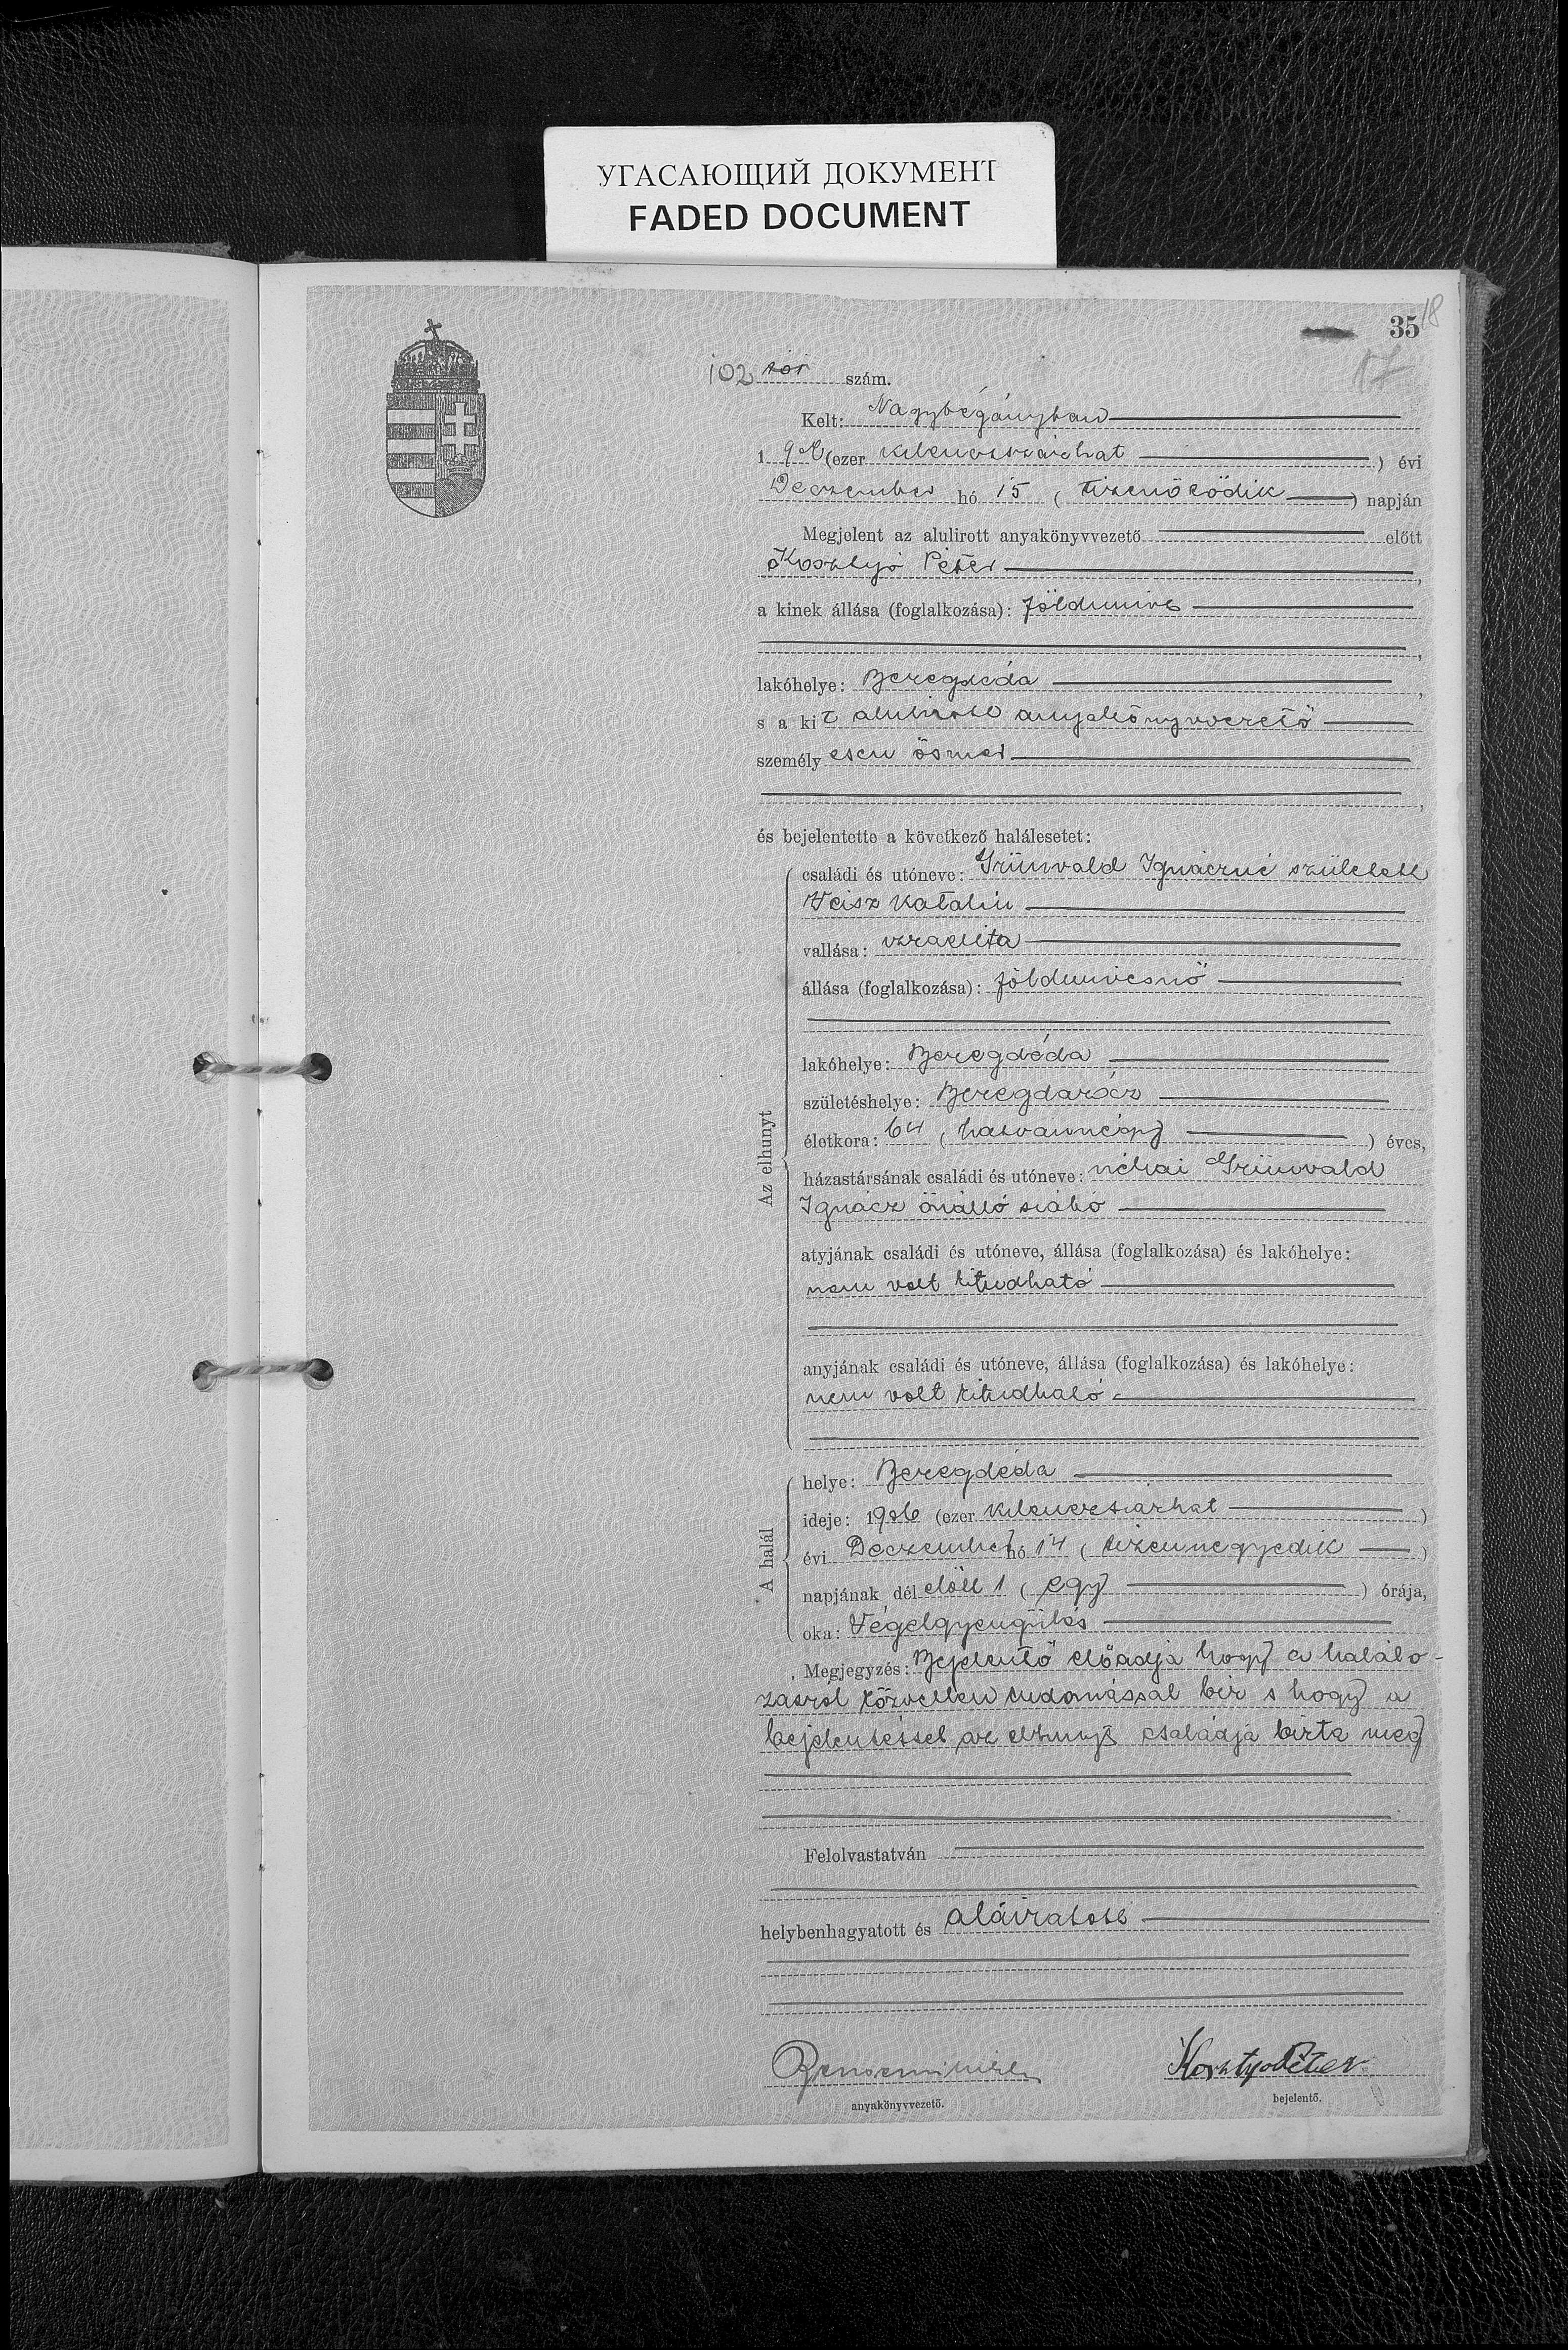 УГАСАЮЩИЙ ДОКУМЕНТ
FADED DOCUMENT
35 18
17
102 szám.
Kelt: Nagybégányban
1 906 (ezer kilenczszázhat ) évi
Deczember hó 15 ( tizenötödik ) napján
Megjelent az alulirott anyakönyvvezető előtt
Kosztyó Péter ,
a kinek állása (foglalkozása): földmives
,
lakóhelye: Beregdéda ,
s a kit alulirott anyakönyvvezető
személy esen ösmer
,
és bejelentette a következő halálesetet:
Az elhunyt
családi és utóneve: Grünvald Ignáczné született
Veisz Katalin
vallása: izraelita
állása (foglalkozása): földmivesnő
lakóhelye: Beregdéda
születéshelye: Beregdarócz
életkora: 64 ( hatvannégy ) éves,
házastársának családi és utóneve: néhai Grünvald
Ignácz önálló szabó
atyjának családi és utóneve, állása (foglalkozása) és lakóhelye:
nem volt kitudható
anyjának családi és utóneve, állása (foglalkozása) és lakóhelye:
nem volt kitudható
A halál
helye: Beregdéda
ideje: 1906 (ezer kilenczszázhat )
évi Deczember hó 14 ( tizennegyedik )
napjának dél előtt 1 ( egy ) órája,
oka: Végelgyengülés
Megjegyzés: Bejelentő előadja hogy a halálo-
zásról közvetlen tudomással bir s hogy a
bejelentéssel az elhunyt családja bizta meg
Felolvastatván
helybenhagyatott és aláiratott
Kosztyo Péter
anyakönyvvezető.
bejelentő.